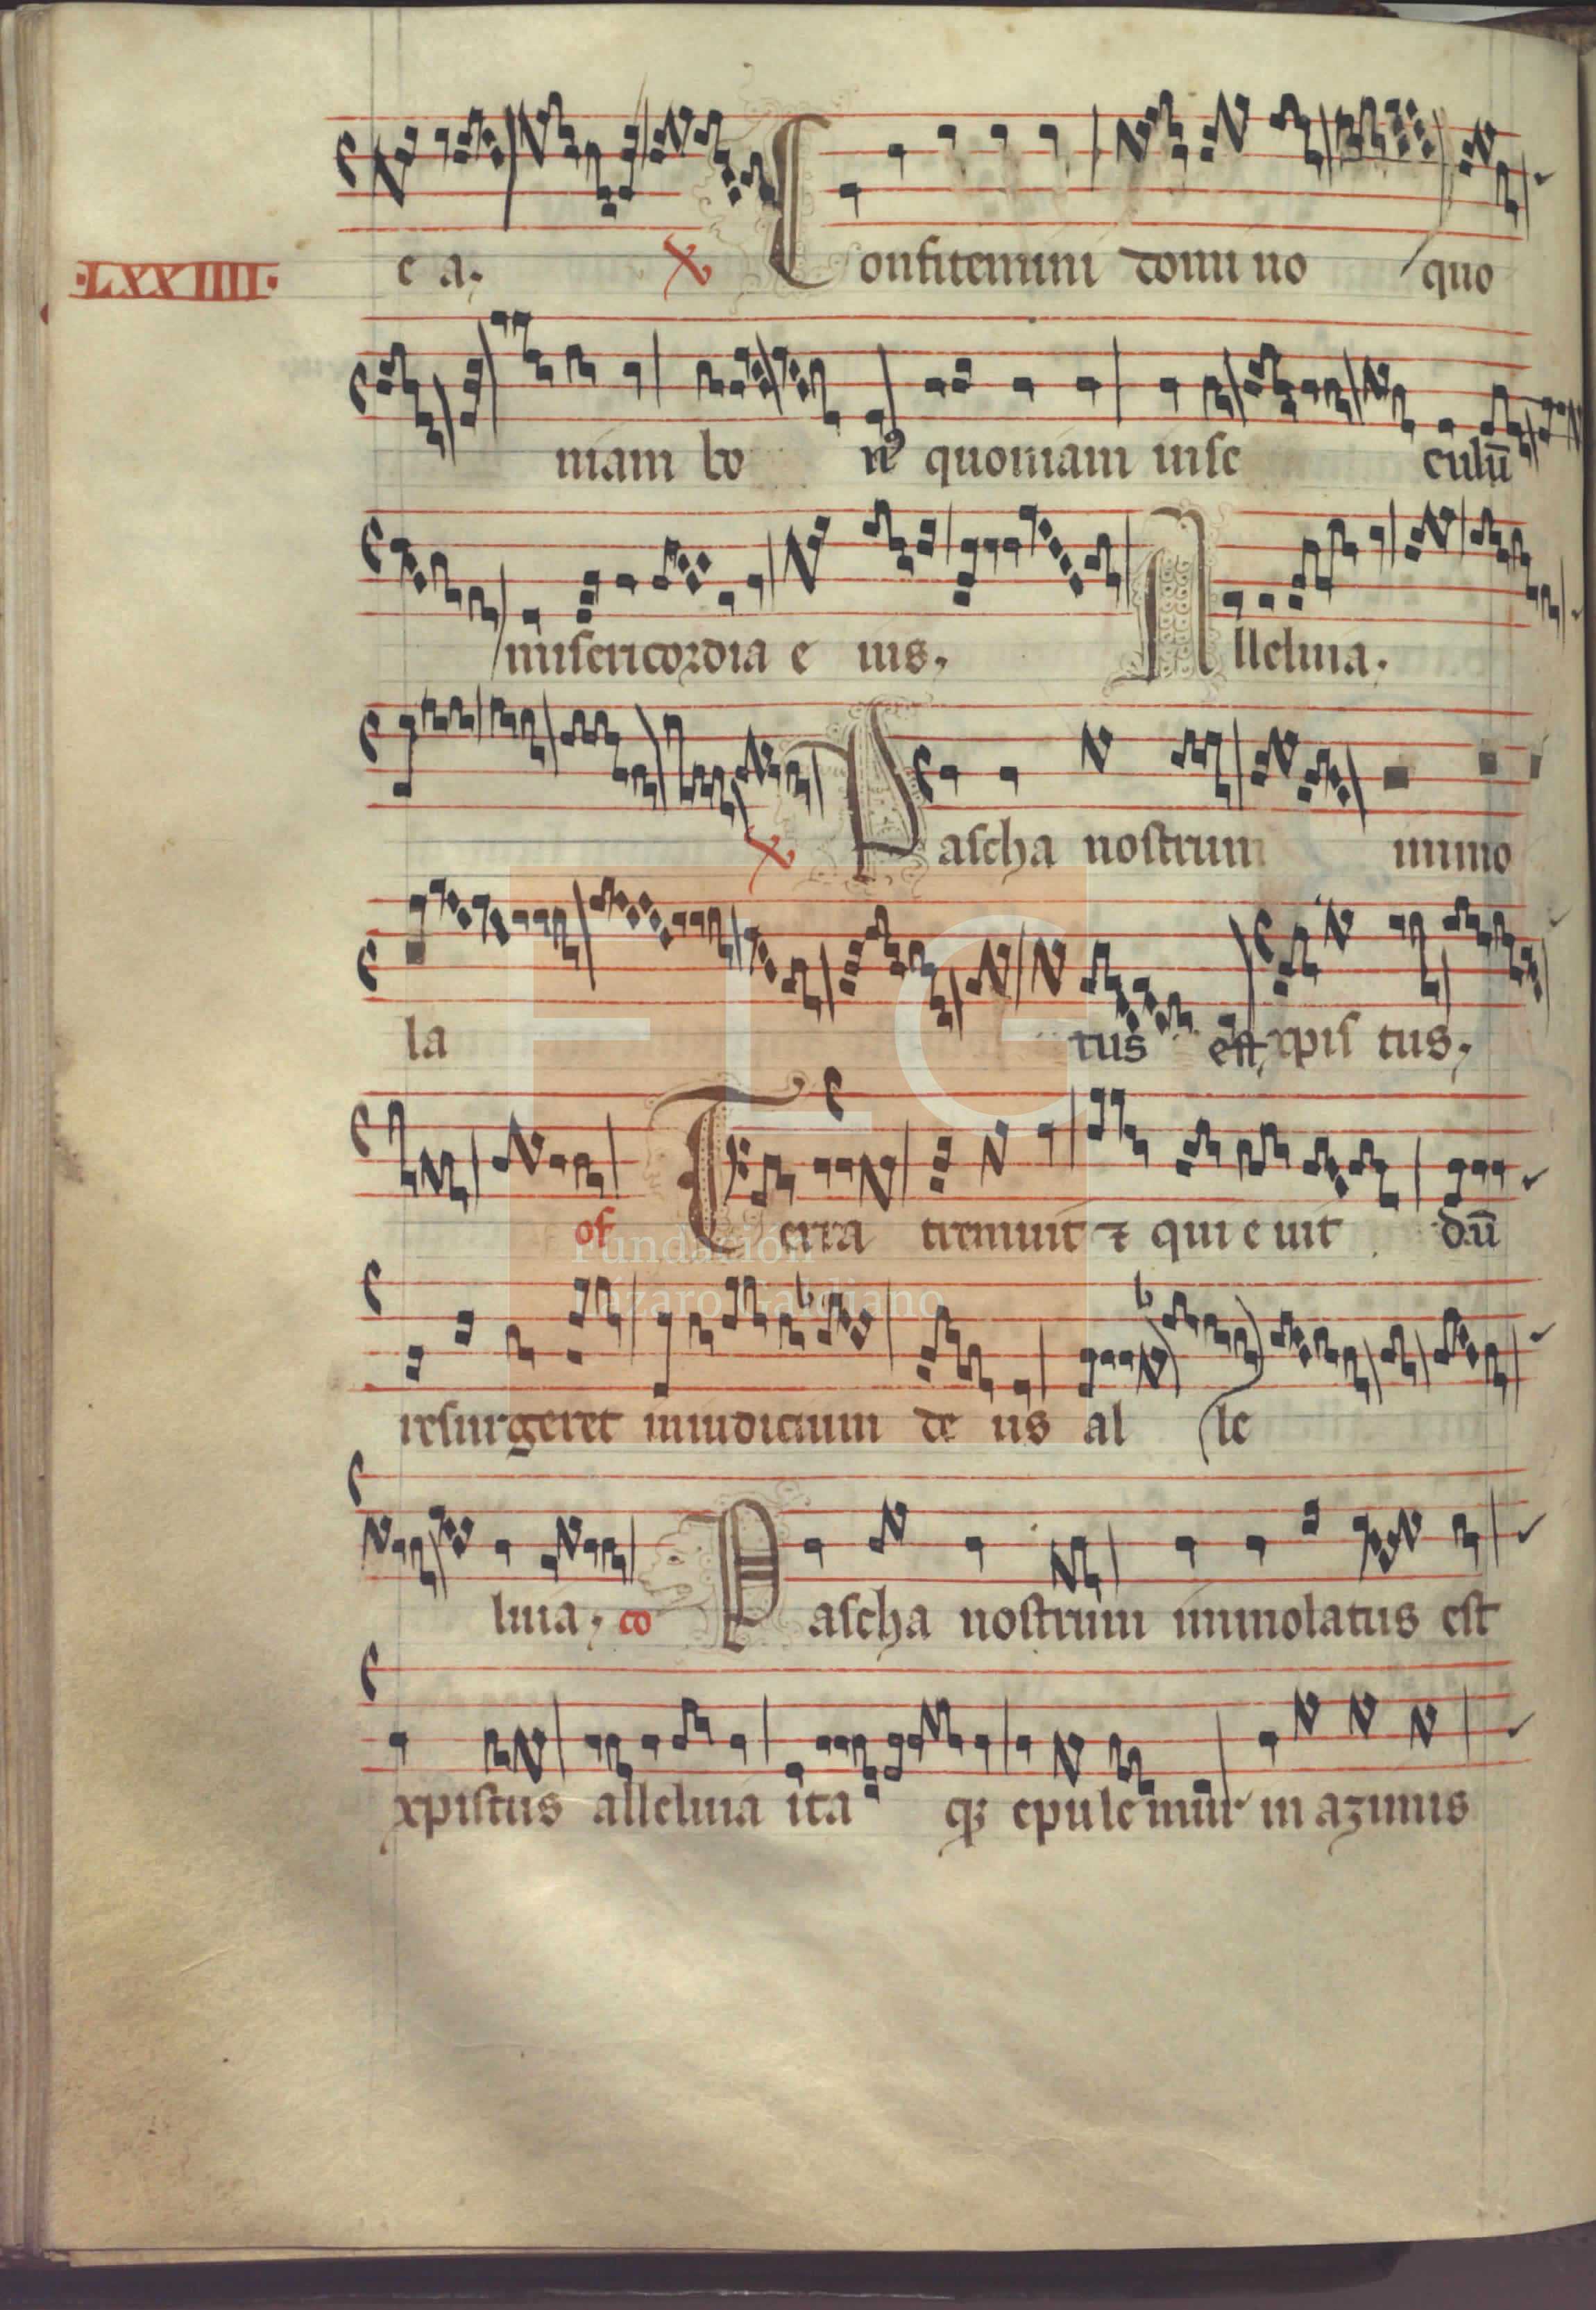 ·LXXIIII·
e a. ℣ Confitemini domi no quo
niam bo n9 quoniam inse culū
misericordia e ius. Alleluia.
℣ Pascha nostrum immo
la tus est xpis tus.
of Terra tremuit ⁊ qui e uit dū
resurgeret iniudicium de us al le
luia. co Pascha nostrum immolatus est
xpistus alleluia ita qꝫ epule mur in azimis
FLG
Fundación
Lázaro Galdiano